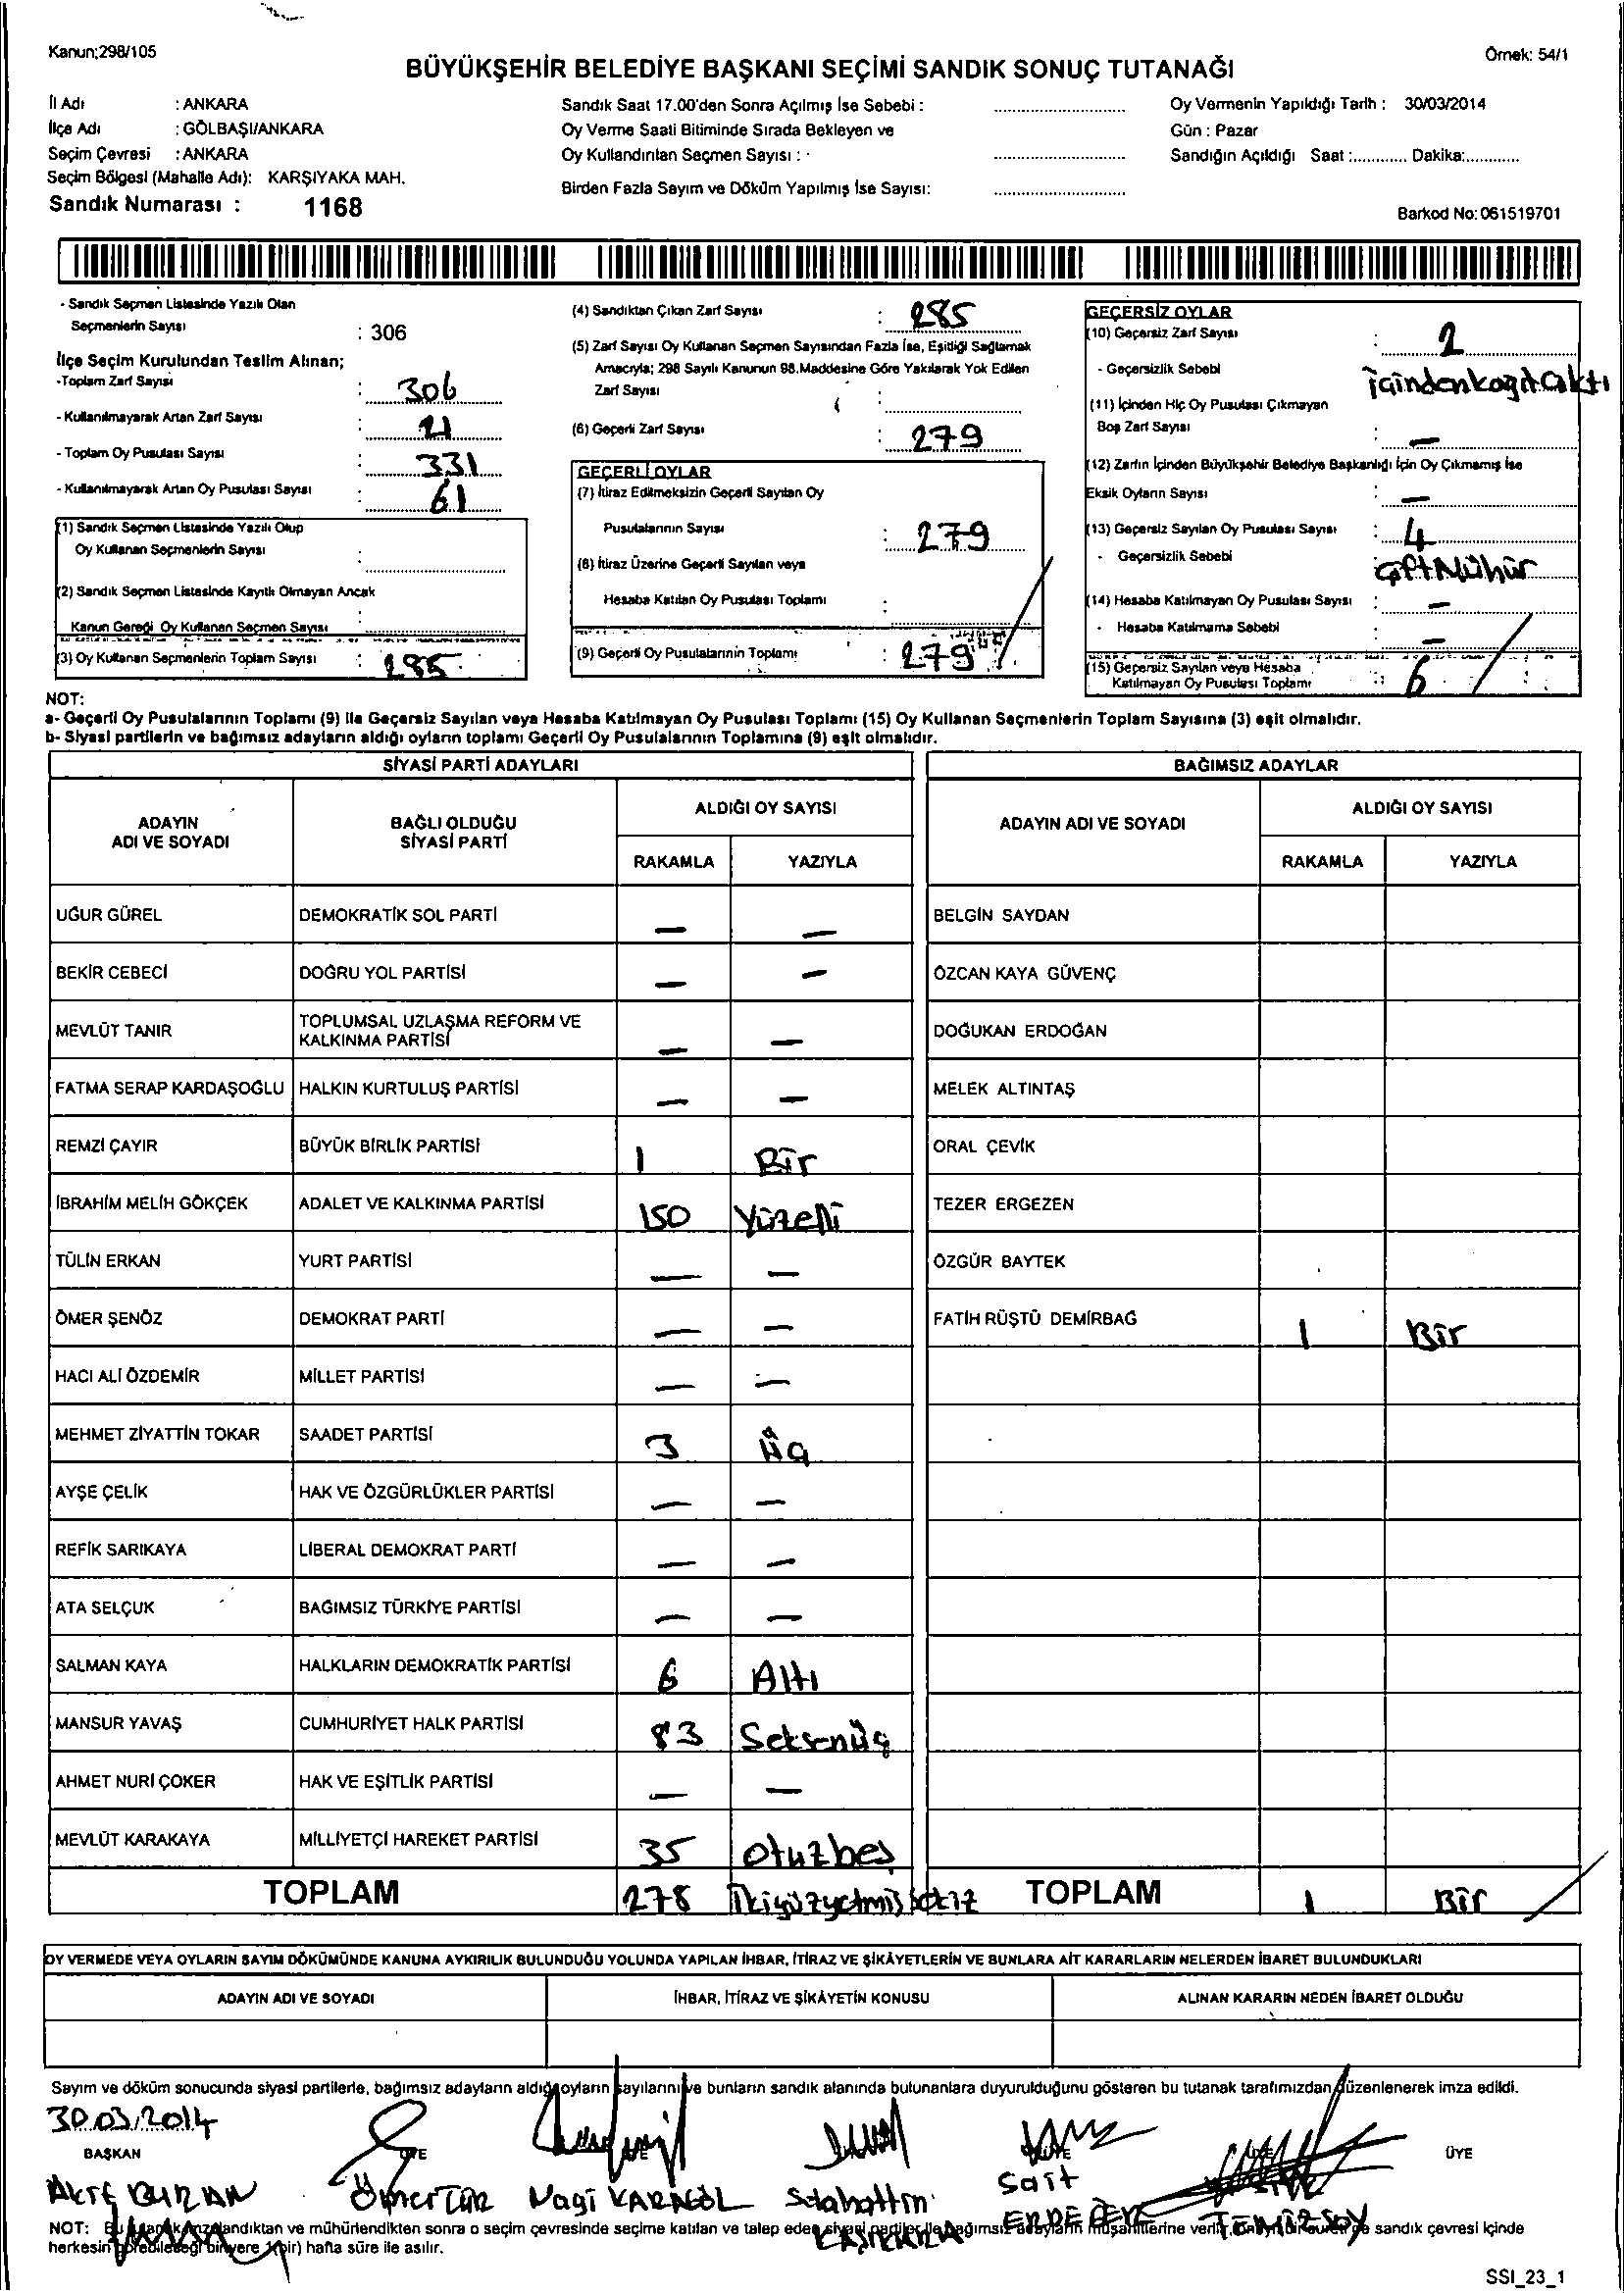 Kanun;298/105
Örnek: 54/1
BÜYÜKŞEHİR BELEDİYE BAŞKANI SEÇİMİ SANDIK SONUÇ TUTANAĞI
İl Adı : ANKARA
İlçe Adı : GÖLBAŞI/ANKARA
Seçim Çevresi : ANKARA
Seçim Bölgesi (Mahalle Adı): KARŞIYAKA MAH.
Sandık Numarası : 1168
Sandık Saat 17.00'den Sonra Açılmış İse Sebebi :
Oy Verme Saati Bitiminde Sırada Bekleyen ve
Oy Kullandırılan Seçmen Sayısı :
Birden Fazla Sayım ve Döküm Yapılmış İse Sayısı:
Oy Vermenin Yapıldığı Tarih : 30/03/2014
Gün : Pazar
Sandığın Açıldığı Saat :............ Dakika:............
Barkod No: 061519701
- Sandık Seçmen Listesinde Yazılı Olan
Seçmenlerin Sayısı : 306
İlçe Seçim Kurulundan Teslim Alınan;
-Toplam Zarf Sayısı : 306
- Kullanılmayarak Artan Zarf Sayısı : 21
- Toplam Oy Pusulası Sayısı : 331
- Kullanılmayarak Artan Oy Pusulası Sayısı : 61
(1) Sandık Seçmen Listesinde Yazılı Olup
Oy Kullanan Seçmenlerin Sayısı :
(2) Sandık Seçmen Listesinde Kayıtlı Olmayan Ancak
Kanun Gereği Oy Kullanan Seçmen Sayısı :
(3) Oy Kullanan Seçmenlerin Toplam Sayısı : 285
(4) Sandıktan Çıkan Zarf Sayısı : 285
(5) Zarf Sayısı Oy Kullanan Seçmen Sayısından Fazla İse, Eşitliği Sağlamak
Amacıyla; 298 Sayılı Kanunun 98.Maddesine Göre Yakılarak Yok Edilen
Zarf Sayısı :
(6) Geçerli Zarf Sayısı : 279
GEÇERLİ OYLAR
(7) İtiraz Edilmeksizin Geçerli Sayılan Oy
Pusulalarının Sayısı : 279
(8) İtiraz Üzerine Geçerli Sayılan veya
Hesaba Katılan Oy Pusulası Toplamı :
(9) Geçerli Oy Pusulalarının Toplamı : 279
GEÇERSİZ OYLAR
(10) Geçersiz Zarf Sayısı : 2
- Geçersizlik Sebebi İçinden kağıt Çıktı
(11) İçinden Hiç Oy Pusulası Çıkmayan
Boş Zarf Sayısı : —
(12) Zarfın İçinden Büyükşehir Belediye Başkanlığı İçin Oy Çıkmamış İse
Eksik Oyların Sayısı : —
(13) Geçersiz Sayılan Oy Pusulası Sayısı : 4
- Geçersizlik Sebebi Çift Mühür
(14) Hesaba Katılmayan Oy Pusulası Sayısı : —
- Hesaba Katılmama Sebebi : —
(15) Geçersiz Sayılan veya Hesaba
Katılmayan Oy Pusulası Toplamı : 6
NOT:
a- Geçerli Oy Pusulalarının Toplamı (9) ile Geçersiz Sayılan veya Hesaba Katılmayan Oy Pusulası Toplamı (15) Oy Kullanan Seçmenlerin Toplam Sayısına (3) eşit olmalıdır.
b- Siyasi partilerin ve bağımsız adayların aldığı oyların toplamı Geçerli Oy Pusulalarının Toplamına (9) eşit olmalıdır.
SİYASİ PARTİ ADAYLARI
ADAYIN ADI VE SOYADI
BAĞLI OLDUĞU SİYASİ PARTİ
ALDIĞI OY SAYISI
RAKAMLA YAZIYLA
UĞUR GÜREL DEMOKRATİK SOL PARTİ — —
BEKİR CEBECİ DOĞRU YOL PARTİSİ — —
MEVLÜT TANIR TOPLUMSAL UZLAŞMA REFORM VE KALKINMA PARTİSİ — —
FATMA SERAP KARDAŞOĞLU HALKIN KURTULUŞ PARTİSİ — —
REMZİ ÇAYIR BÜYÜK BİRLİK PARTİSİ 1 Bir
İBRAHİM MELİH GÖKÇEK ADALET VE KALKINMA PARTİSİ 150 Yüzelli
TÜLİN ERKAN YURT PARTİSİ — —
ÖMER ŞENÖZ DEMOKRAT PARTİ — —
HACI ALİ ÖZDEMİR MİLLET PARTİSİ — —
MEHMET ZİYATTİN TOKAR SAADET PARTİSİ 3 Üç
AYŞE ÇELİK HAK VE ÖZGÜRLÜKLER PARTİSİ — —
REFİK SARIKAYA LİBERAL DEMOKRAT PARTİ — —
ATA SELÇUK BAĞIMSIZ TÜRKİYE PARTİSİ — —
SALMAN KAYA HALKLARIN DEMOKRATİK PARTİSİ 6 Altı
MANSUR YAVAŞ CUMHURİYET HALK PARTİSİ 83 Seksenüç
AHMET NURİ ÇOKER HAK VE EŞİTLİK PARTİSİ — —
MEVLÜT KARAKAYA MİLLİYETÇİ HAREKET PARTİSİ 35 otuzbeş
TOPLAM 278 İkiyüzyetmişsekiz
BAĞIMSIZ ADAYLAR
ADAYIN ADI VE SOYADI
ALDIĞI OY SAYISI
RAKAMLA YAZIYLA
BELGİN SAYDAN
ÖZCAN KAYA GÜVENÇ
DOĞUKAN ERDOĞAN
MELEK ALTINTAŞ
ORAL ÇEVİK
TEZER ERGEZEN
ÖZGÜR BAYTEK
FATİH RÜŞTÜ DEMİRBAĞ 1 Bir
TOPLAM 1 Bir
OY VERMEDE VEYA OYLARIN SAYIM DÖKÜMÜNDE KANUNA AYKIRILIK BULUNDUĞU YOLUNDA YAPILAN İHBAR, İTİRAZ VE ŞİKÂYETLERİN VE BUNLARA AİT KARARLARIN NELERDEN İBARET BULUNDUKLARI
ADAYIN ADI VE SOYADI
İHBAR, İTİRAZ VE ŞİKÂYETİN KONUSU
ALINAN KARARIN NEDEN İBARET OLDUĞU
Sayım ve döküm sonucunda siyasi partilerle, bağımsız adayların aldığı oyların sayılarını ve bunların sandık alanında bulunanlara duyurulduğunu gösteren bu tutanak tarafımızdan düzenlenerek imza edildi.
30.03.2014
BAŞKAN ÜYE ÜYE ÜYE ÜYE
Akif Ömer Nagi KARAGÖL Selahattin Sait
TEMİZSOY
NOT: Bu tutanak imzalandıktan ve mühürlendikten sonra o seçim çevresinde seçime katılan ve talep eden siyasi partiler ile bağımsız adayların müşahitlerine verilir. sandık çevresi içinde
herkesin görebileceği bir yere 1(bir) hafta süre ile asılır.
SSI_23_1